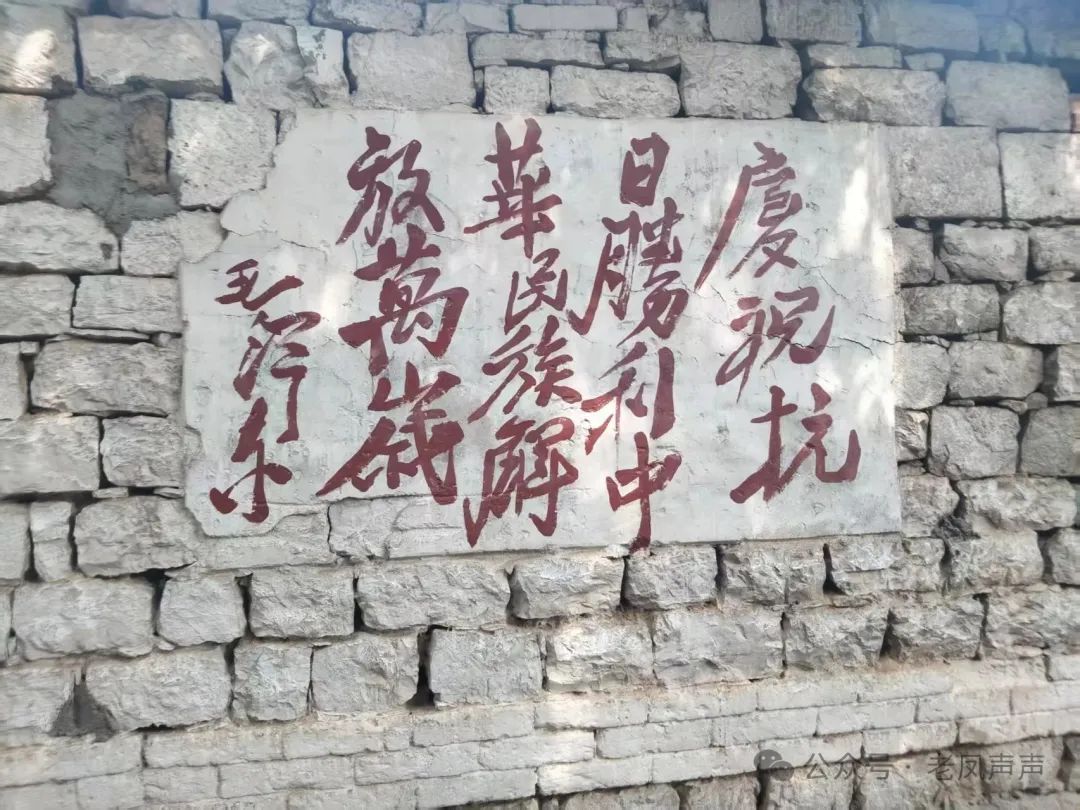 慶祝抗
日勝利中
華民族解
放萬歲
毛泽东
公众号 · 老凤声声